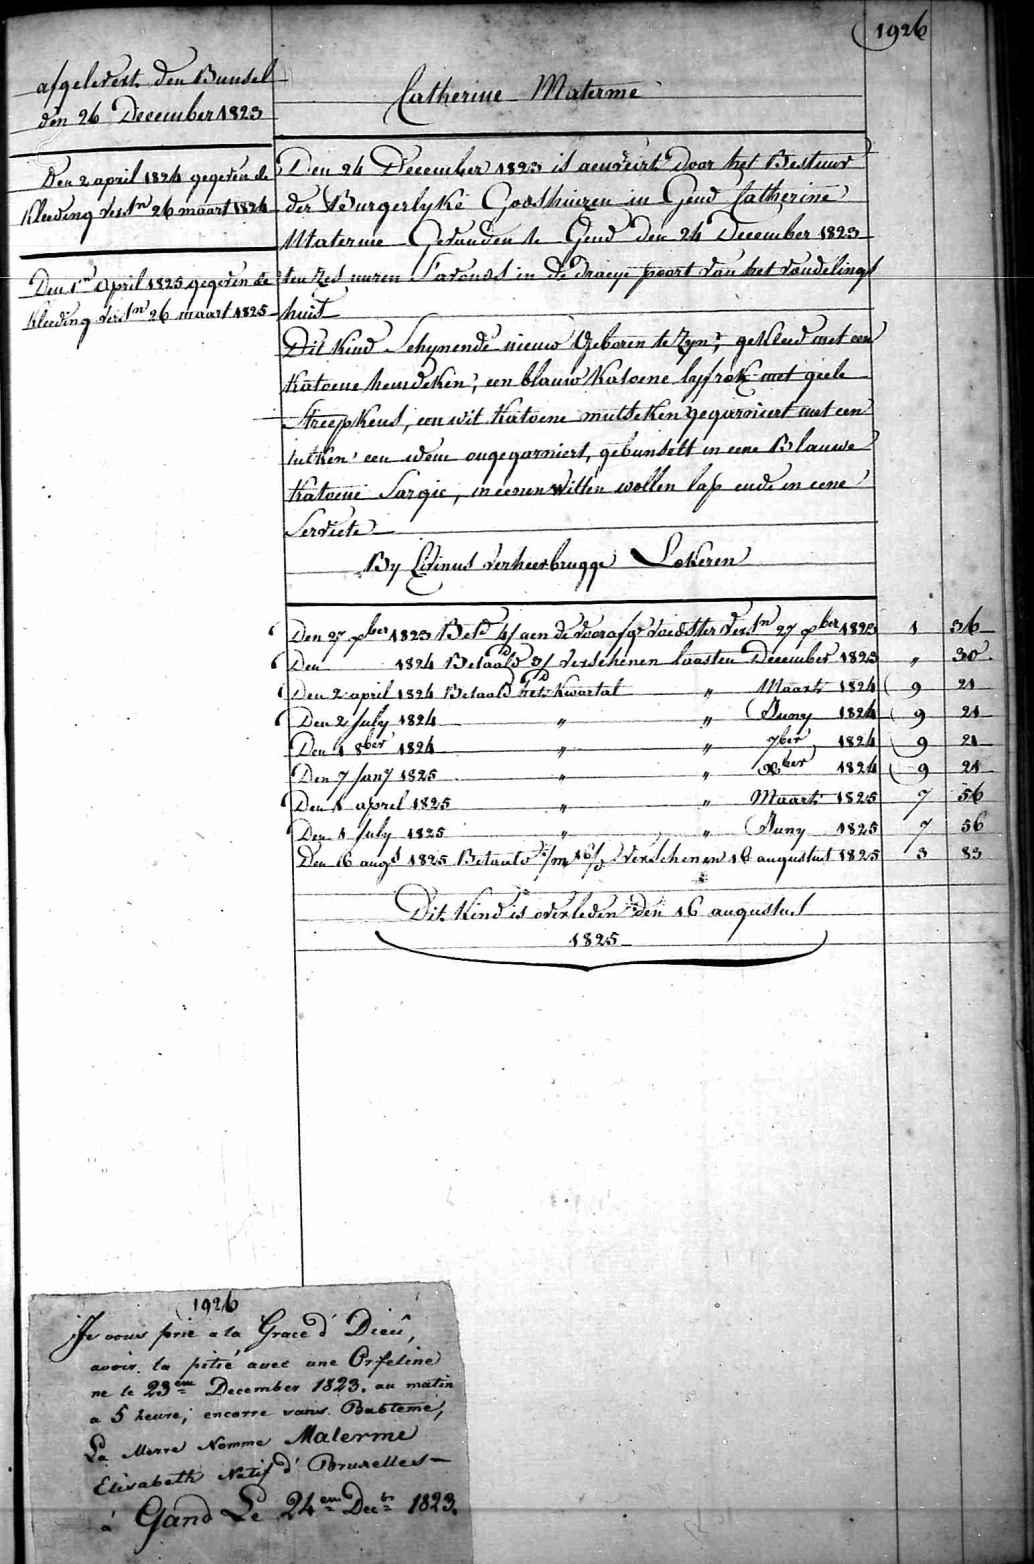 1926
afgelevert den Bunsel
den 26 December 1823
Den 2 april 1824 gegeven de
Kleeding verstn 26 maart 1824
Den 1en April 1825 gegeven de
Kleeding verstn 26 maart 1825
Catherine Materme
Den 24 December 1823 is aenveirt door het Bestuur
der Burgerlyke Godshuizen in Gend Catherine
Materme Gevonden te Gend den 24 December 1823
ten zes uuren s'avonds in de Draeye poort van het vondelings
huis
Dit kind Schynende nieuw Geboren te zyn, gekleed met een
katoene hemdeken, een blauw katoene lyfrok met geele
Streepkens, een wit katoene mutseken gegarniert met een
tulken een idem ongegarniert, gebunselt in eene Blauwe
katoene Sargie, in eenen witten wollen lap ende in eene
Serviete
By Livinus verheerbrugge Lokeren
Den 27 xber 1823 Betd 4/ aen de voorafge voedster verstn 27 xber 1823 1 36
Den 1824 Betaald 3/ verschenen laasten December 1823 " 30
Den 2 april 1824 Betaald het kwartal " Maart 1824 9 21
Den 2 July 1824 " " Juny 1824 9 21
Den 1 8ber 1824 " " 7ber 1824 9 21
Den 7 Jany 1825 " " xber 1824 9 21
Den 1 april 1825 " " Maart 1825 7 56
Den 1 July 1825 " " Juny 1825 7 56
Den 16 augt 1825 Betaald verschenen 16 augustus 1825 3 83
Dit Kind is overleden den 16 augustus
1825
1926
Je vous prie a la Grace d' Dieû,
avoir la pitié avec une Orfeline
ne le 23em December 1823. au matin
a 5 heure, encorre sans Babteme,
La Merre Nomme Materme
Elisabeth Natif d' Bruxelles
á Gand Le 24em Decbr 1823.